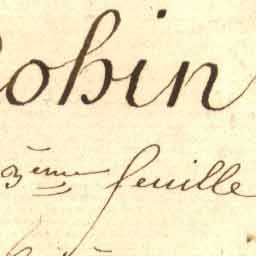 Robin
3ème feuille